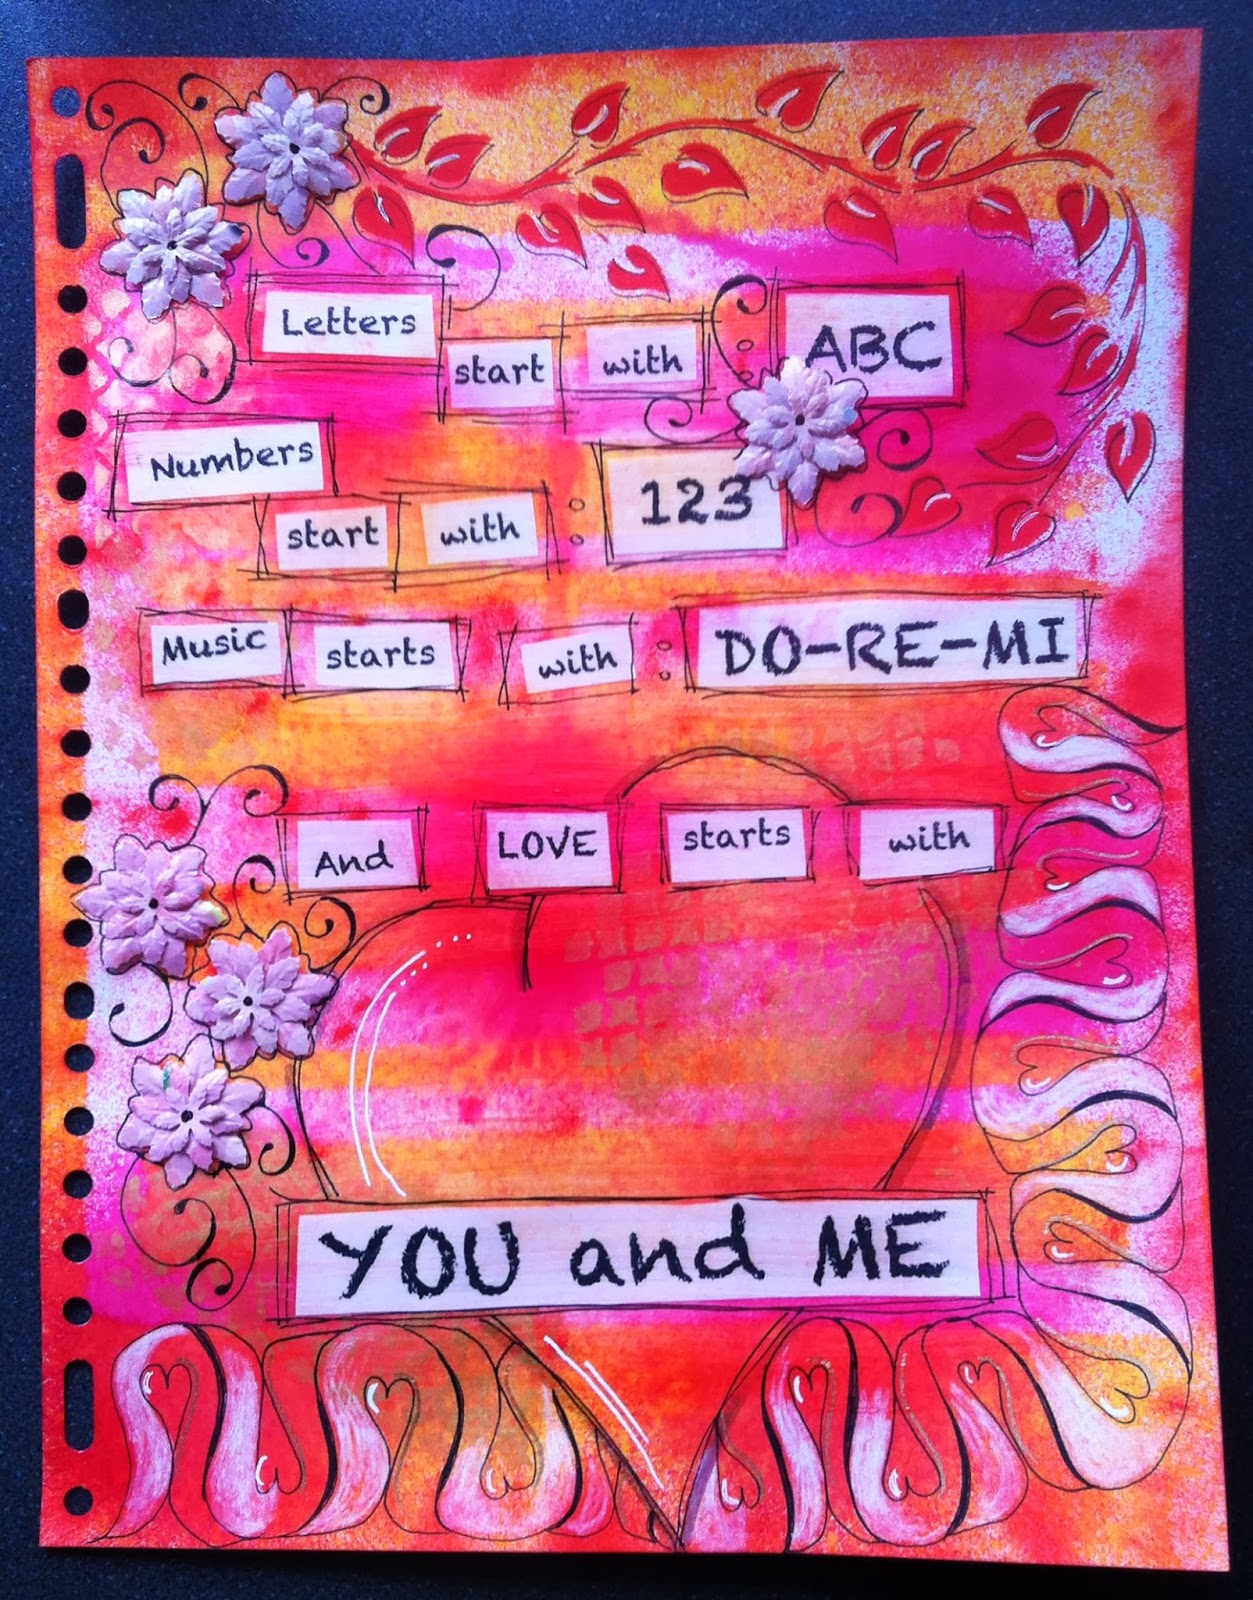 Letters start with : ABC
Numbers start with : 123
Music starts with : DO-RE-MI
And LOVE starts with
YOU and ME